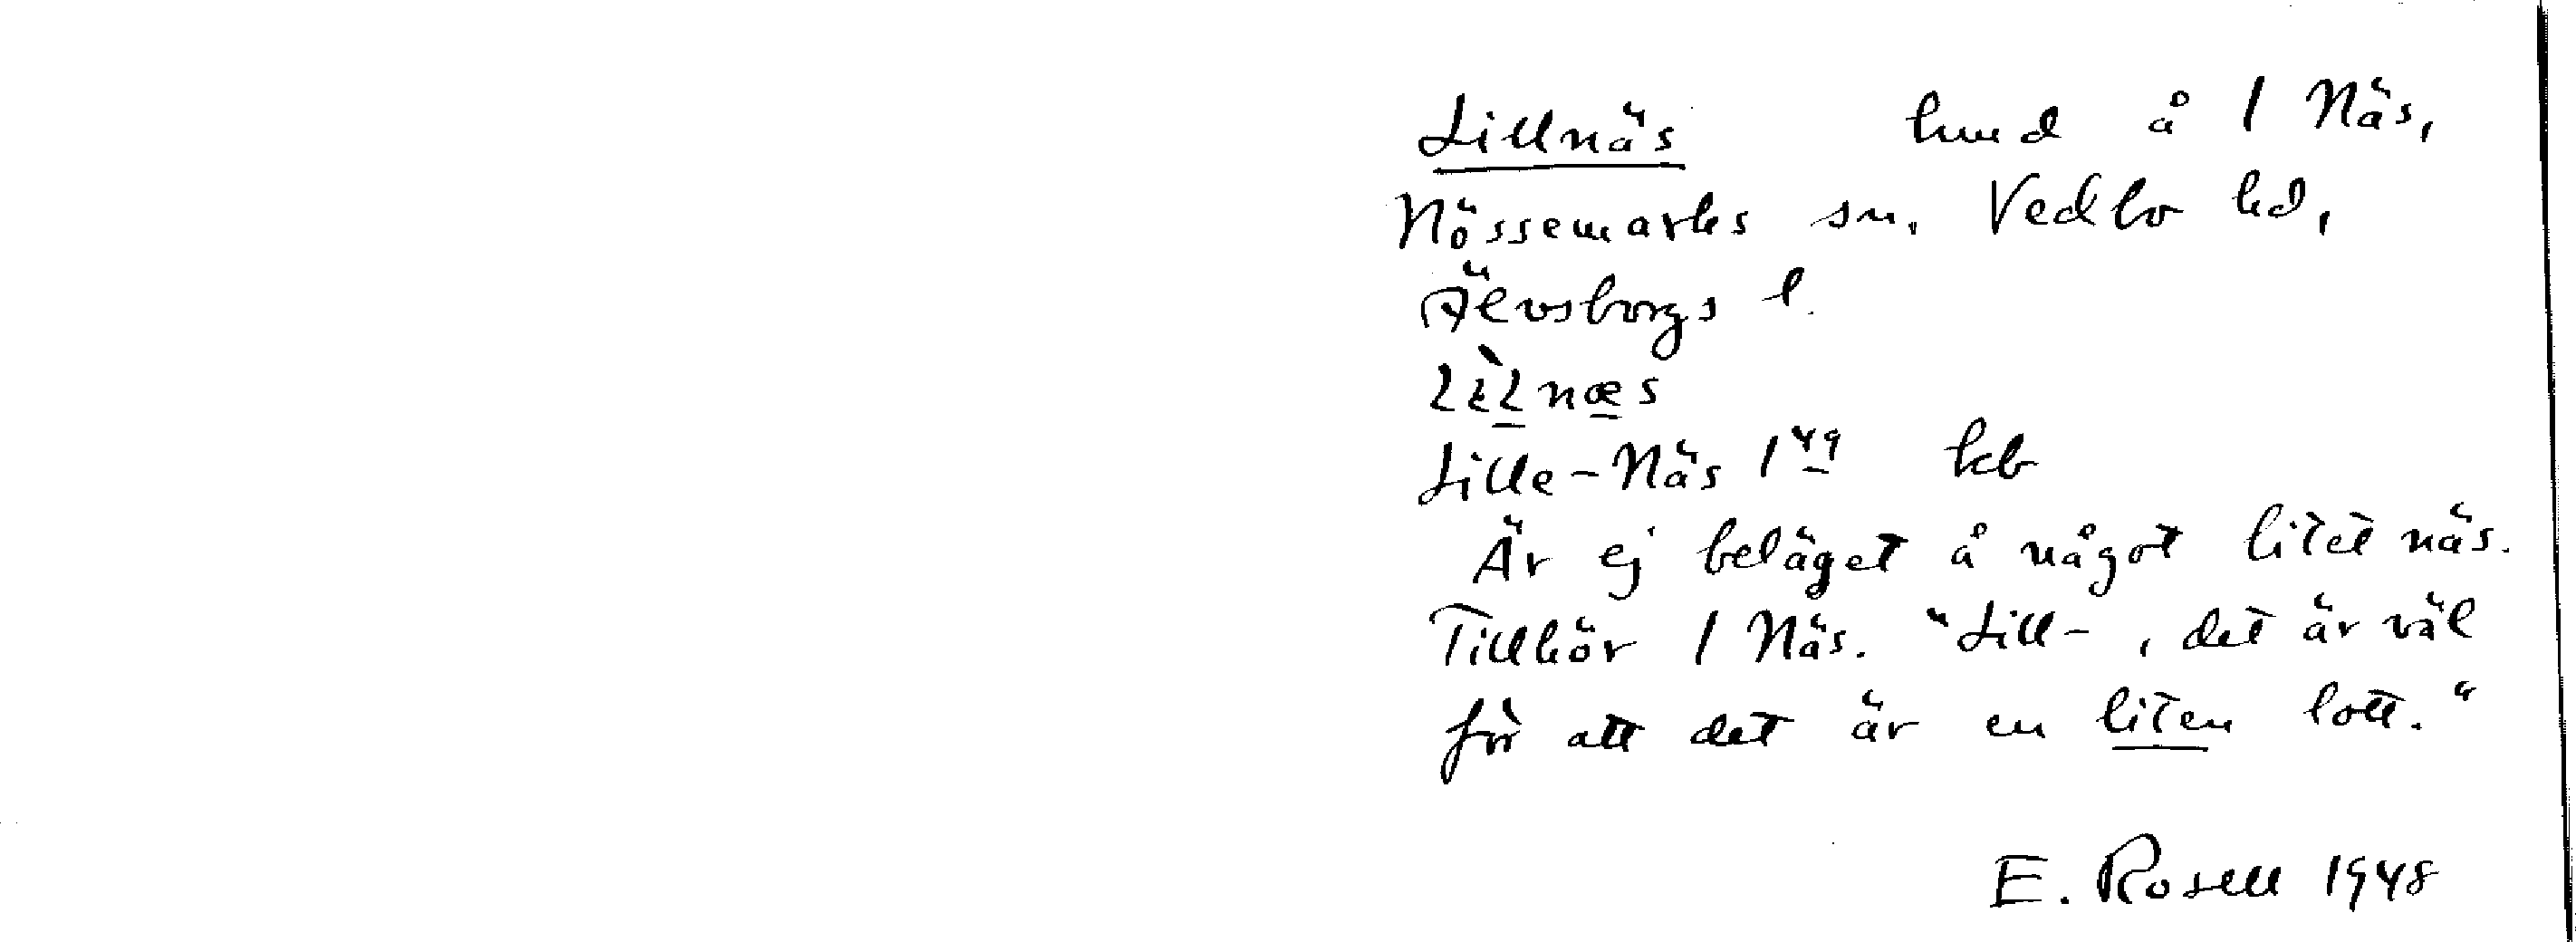 Lillnäs hmd å 1 Näs,
Nössemarks sn. Vedbo hd,
Älvsborgs l.
Lille-Näs 1 49 kb
Är ej beläget å något litet näs.
Tillhör 1 Näs. "Lill-, det är väl
för att det är en liten lott."
E. Rosell 1948